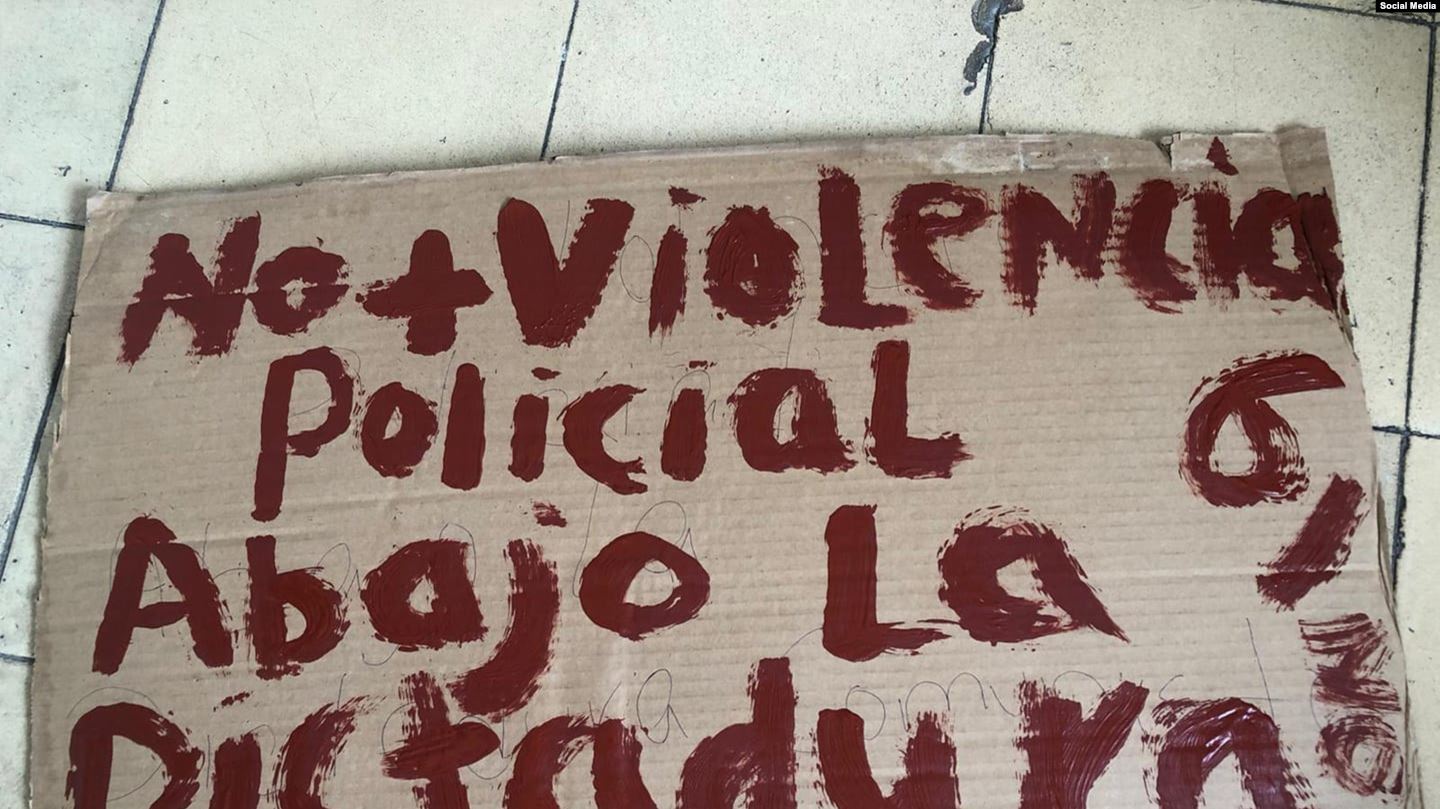 Social Media
No + VioLencia
PoliciaL
Abajo La
Dictadura